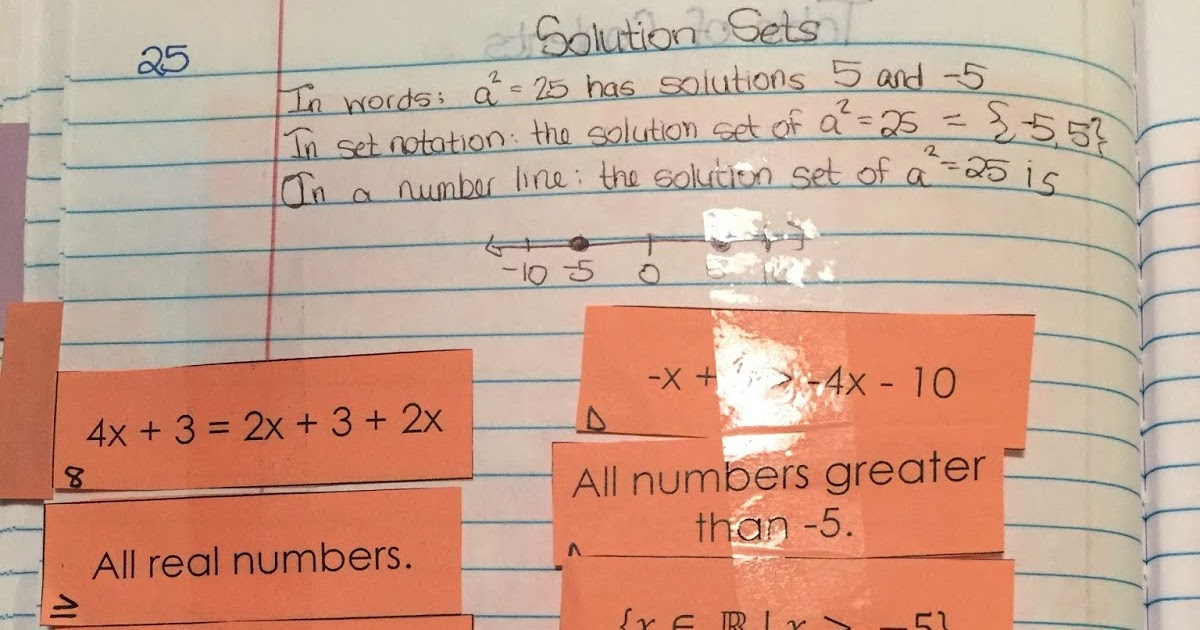 Solution Sets
25
In words: a² = 25 has solutions 5 and -5
In set notation: the solution set of a² = 25 = {-5, 5}
On a number line: the solution set of a² = 25 is
-10 -5 0 5
4x + 3 = 2x + 3 + 2x
8
All real numbers.
≥
-x + > -4x - 10
Δ
All numbers greater
than -5.
^
{x ∈ ℝ | x > -5}